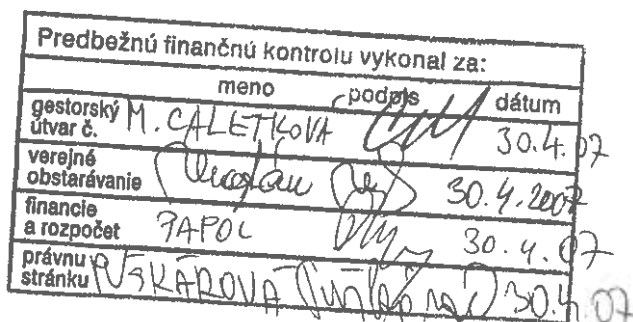 Predbežnú finančnú kontrolu vykonal za:
meno podpis dátum
gestorský útvar č. M. CALETKOVÁ 30.4.07
verejné obstarávanie 30.4.2007
financie a rozpočet PAPOL 30.4.07
právnu stránku PUŠKÁROVÁ 30.4.07